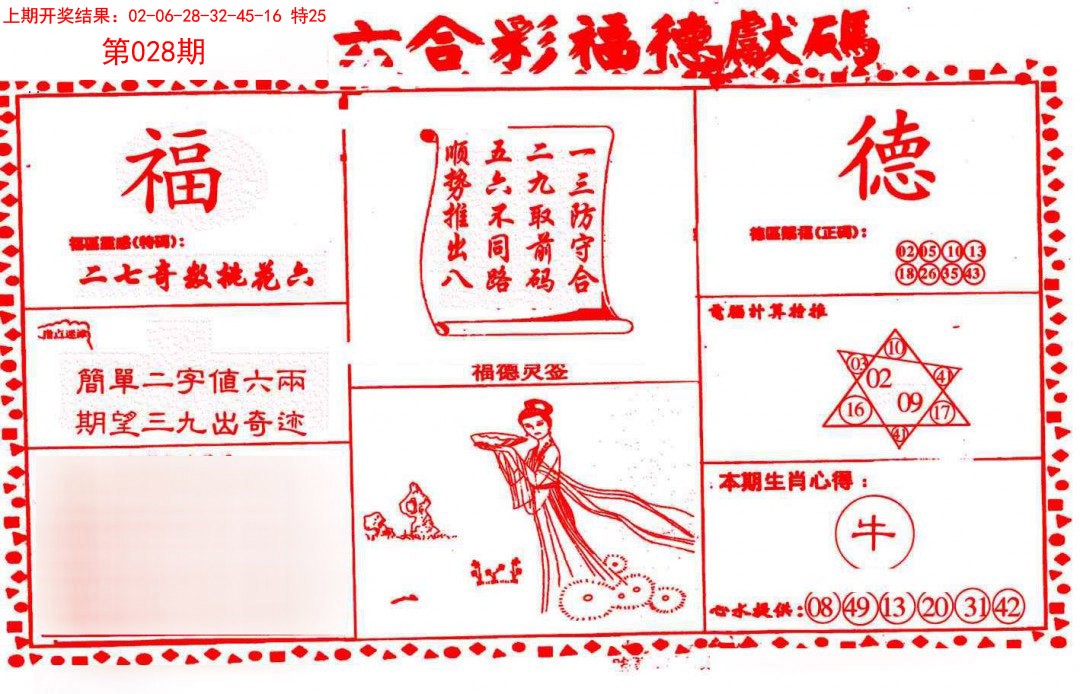 上期开奖结果：02-06-28-32-45-16 特25
第028期
六合彩福德獻碼
福
福區靈感(特碼)：
二七奇数桃花六
簡單二字值六兩
期望三九出奇迹
一三防守合
二九取前码
五六不同路
顺势推出八
福德灵签
德
德區賜福(正碼)：
02 05 10 13
18 26 35 43
電腦計算檢推
10
03 02 41
16 09 17
41
本期生肖心得：
牛
心水提供：08 49 13 20 31 42